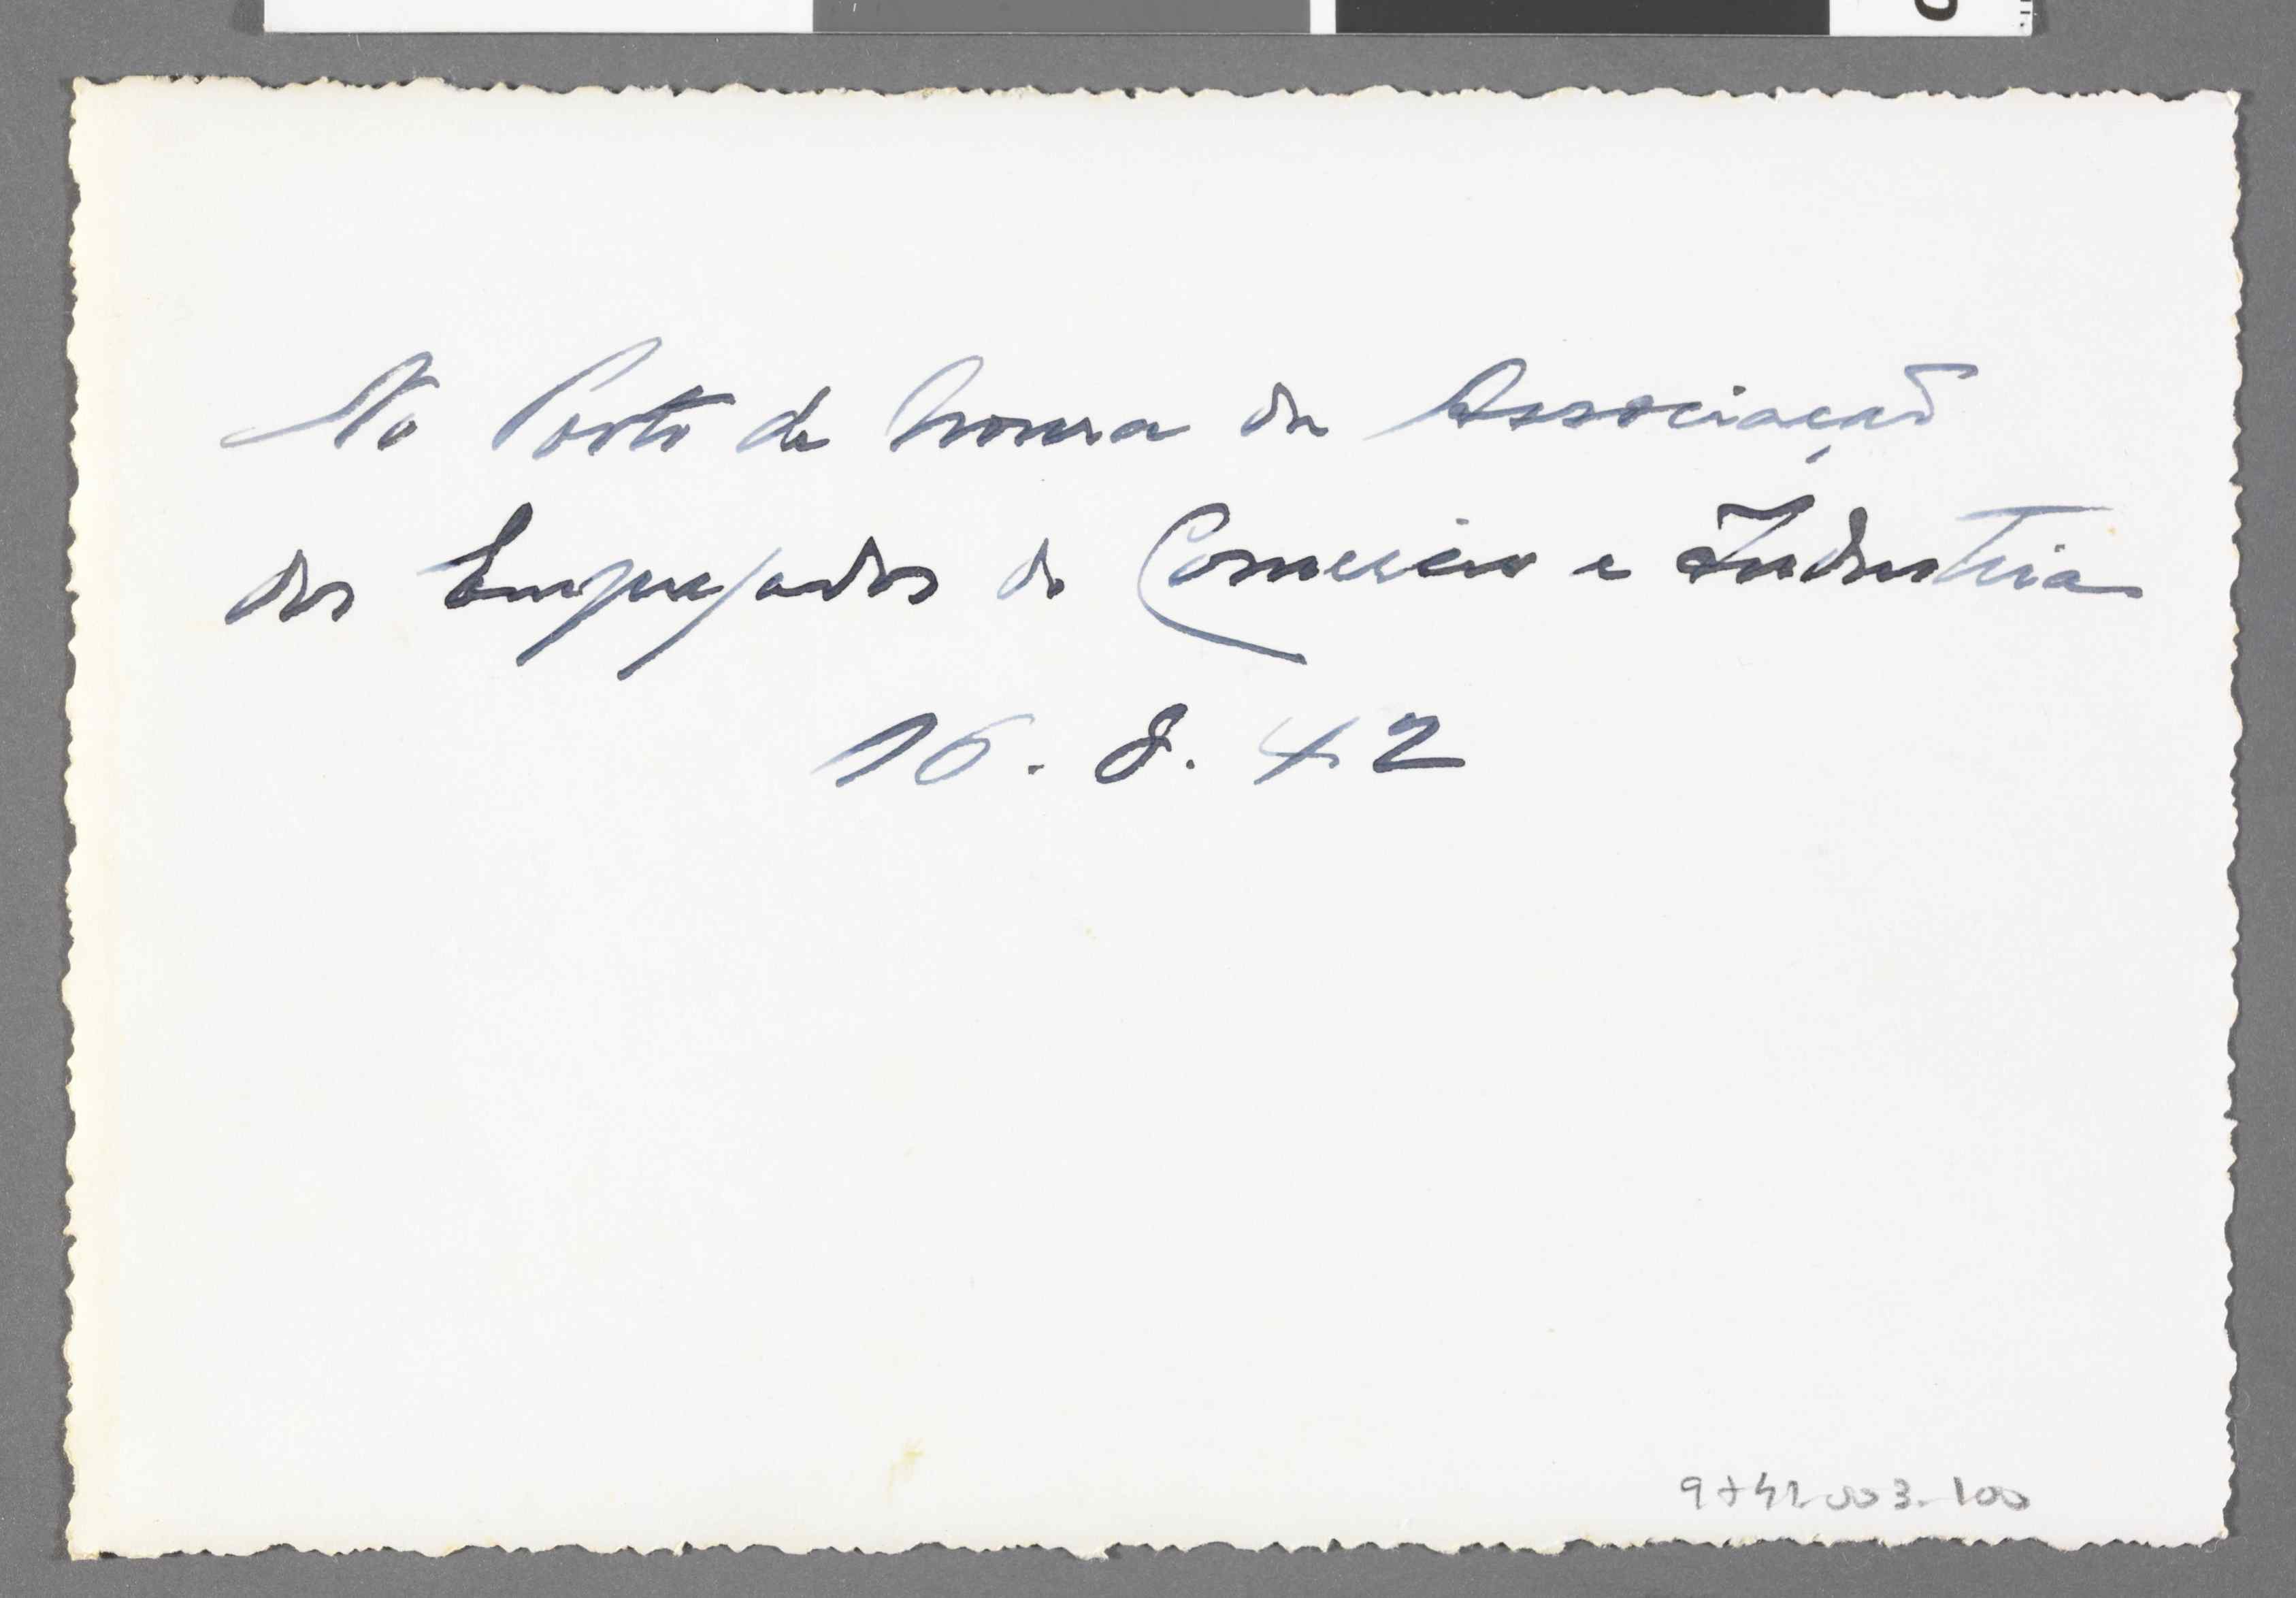 No Porto de honra da Associação
dos Empregados do Comercio e Industria
16. 8. 42